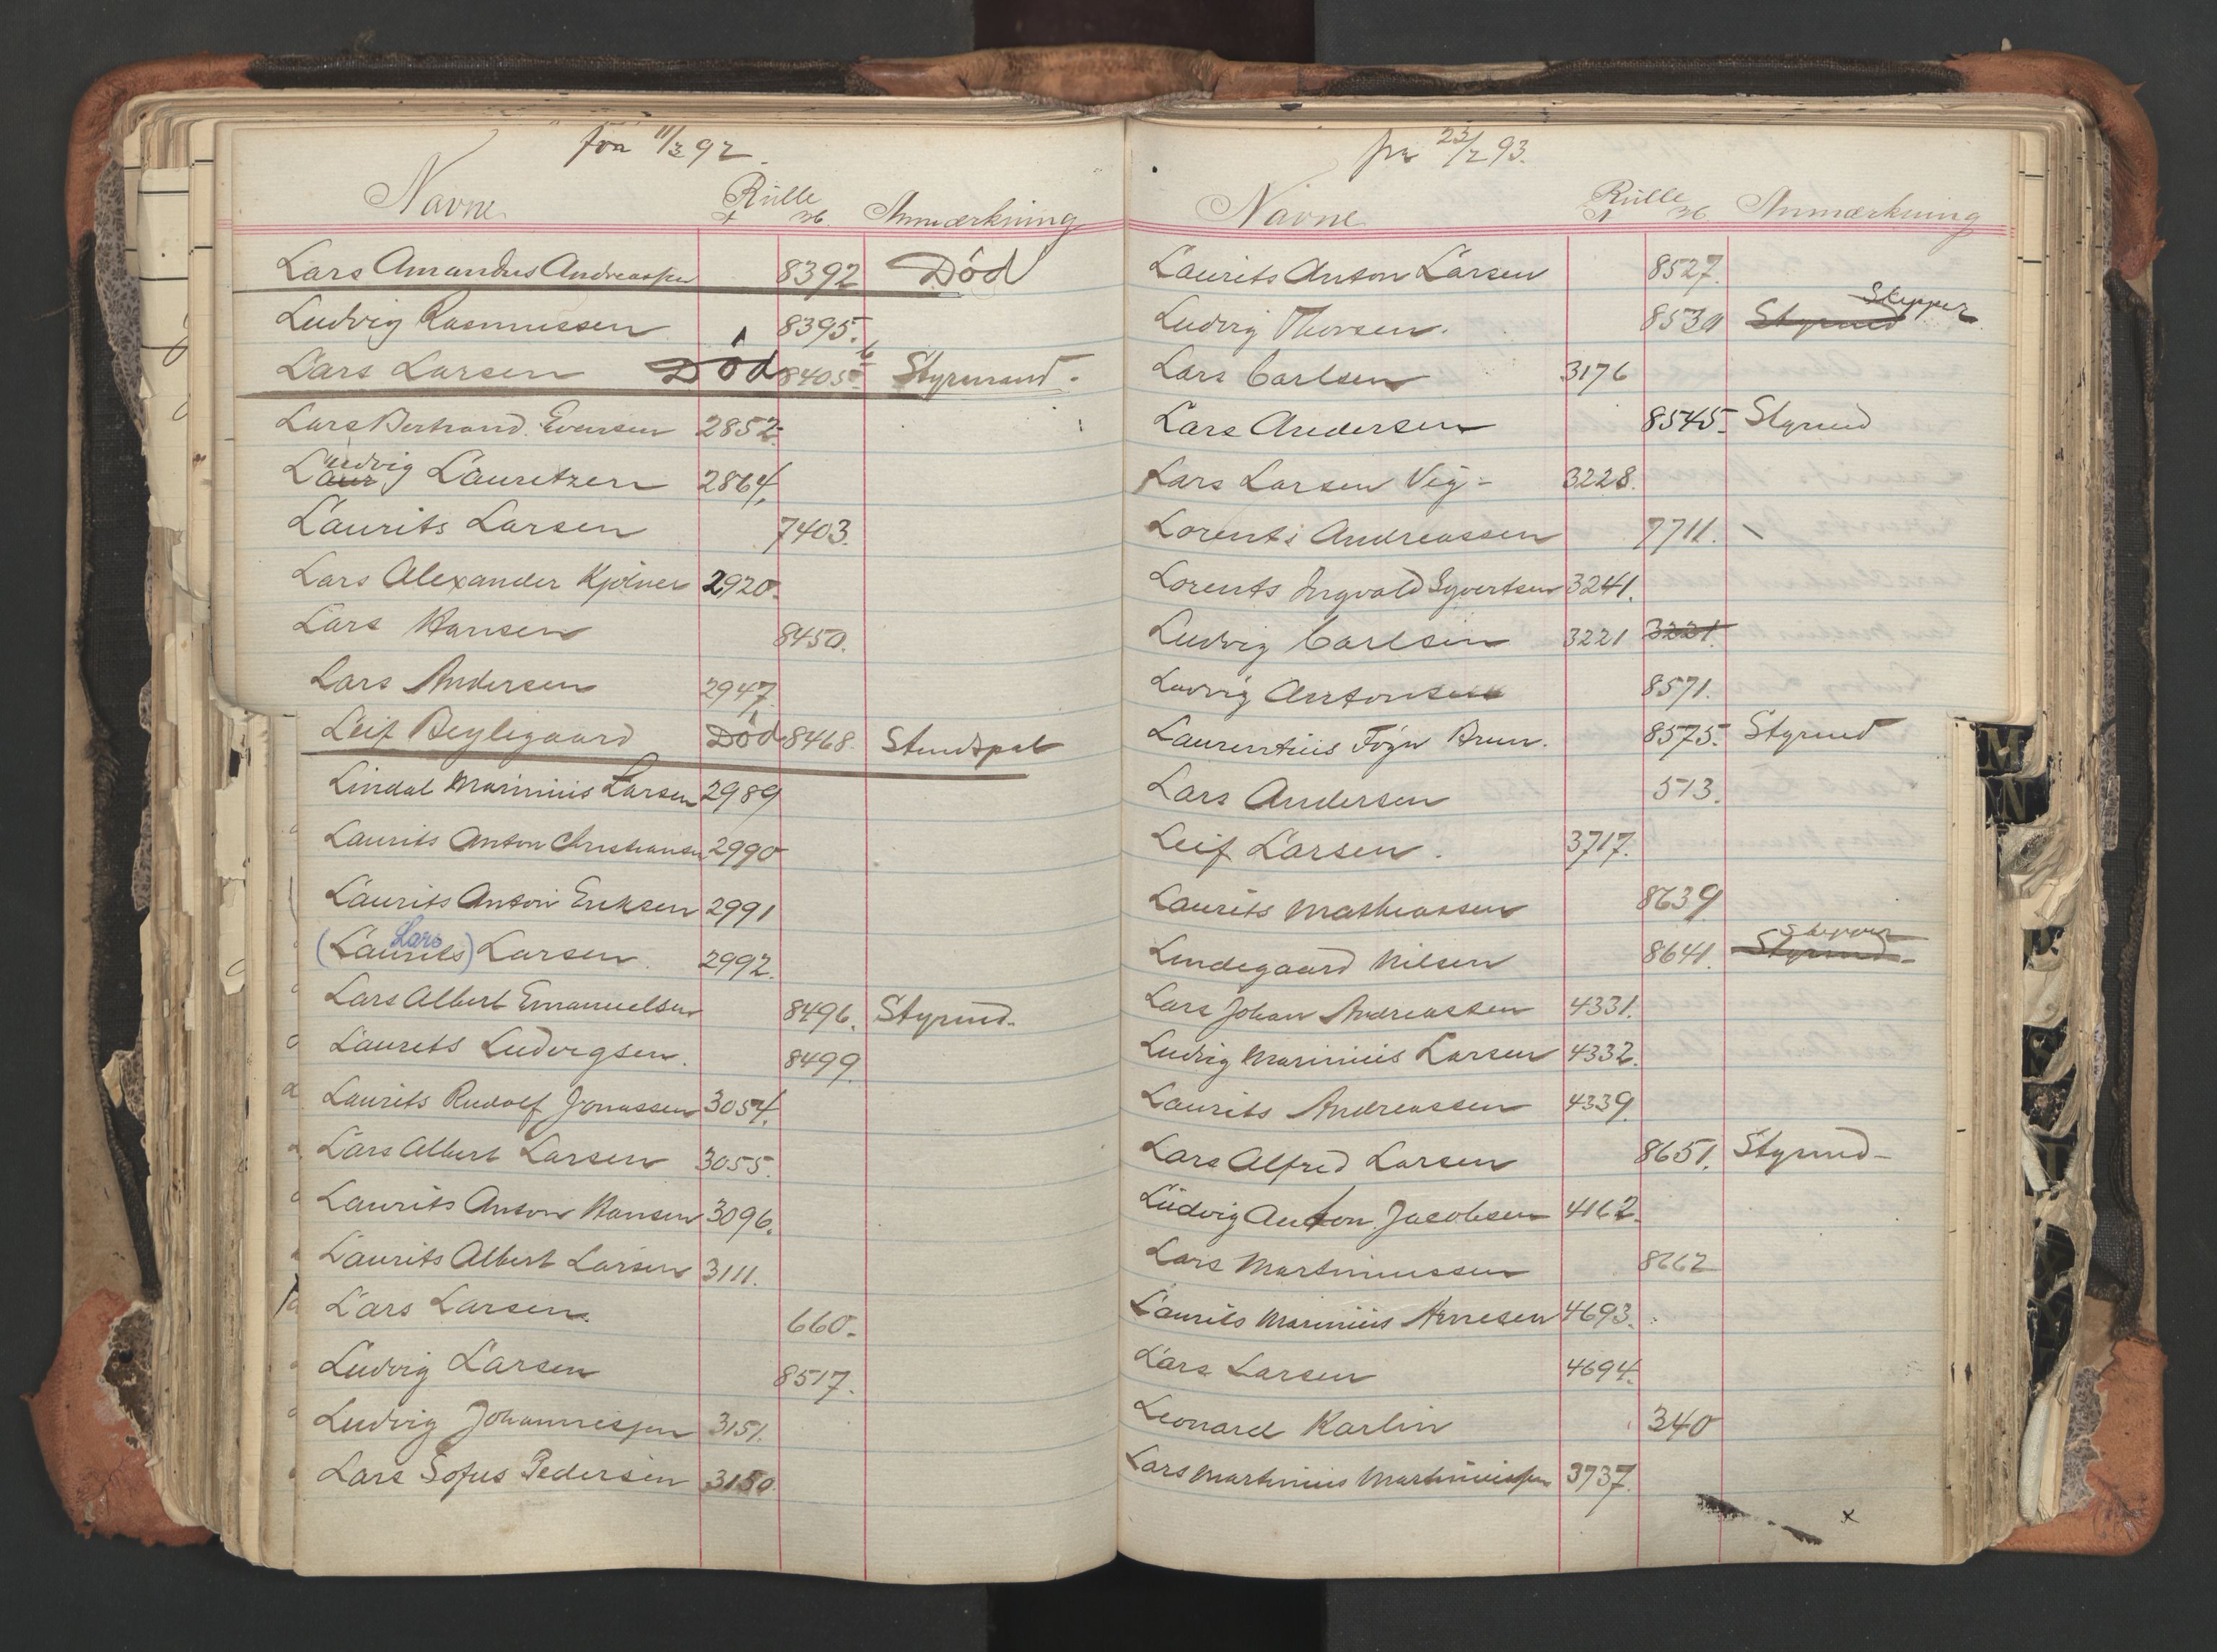 fra 11/3 92.
Navne Rulle Anmærkning
A No.
Lars Amandus Andreassen 8392 Död
Ludvig Rasmussen 8395.
Lars Larsen Död 8405 b Styrmand.
Lars Bertrand Evensen 2852.
Laur Ludvig Lauritzen 2864.
Laurits Larsen 7403.
Lars Alexander Kjölner 2920.
Lars Hansen 8450.
Lars Andersen 2947.
Leif Beylegaard Död 8468. Stuudspat
Lindal Marinius Larsen 2989
Laurits Anton Christiansen 2990
Laurits Anton Eriksen 2991
(Laurits) Lars Larsen 2992.
Lars Albert Emanuelsen 8496. Styrmd.
Laurets Ludvigsen. 8499.
Laurits Rudolf Jonassen 3054.
Lars Albert Larsen 3055.
Laurits Anton Hansen 3096.
Laurits Albert Larsen 3111.
Lars Larsen. 660.
Ludvig Larsen 8517.
Ludvig Johannessen 3151.
Lars Sofus Pedersen 3150.
fra 23/2 93.
Navne Rulle Anmærkning
A No.
Laurits Anton Larsen 8527.
Ludvig Thorsen. 8530 Styrmd Skipper
Lars Carlsen 3176
Lars Andersen 8545. Styrmd
Lars Larsen Vig- 3228.
Lorents Andreassen 7711.
Lorents Ingvald Syvertsen 3241.
Ludvig Carlsen 3221 3221.
Ludvig Antonsen 8571.
Laurentius Föyn Brun. 8575. Styrmd
Lars Andersen 513.
Leif Larsen. 3717.
Laurits Mathiassen 8639
Lindegaard Nilsen 8641. Styrmd Skipper
Lars Johan Andreassen 4331.
Ludvig Marinius Larsen 4332.
Laurits Andreassen 4339.
Lars Alfred Larsen 8651. Styrmd-
Ludvig Anton Jacobsen 4162.
Lars Martinussen 8662
Laurits Marinius Arnesen 4693.
Lars Larsen 4694.
Leonard Karlin 340
Lars Martinius Martiniussen 3737.
x
M
N